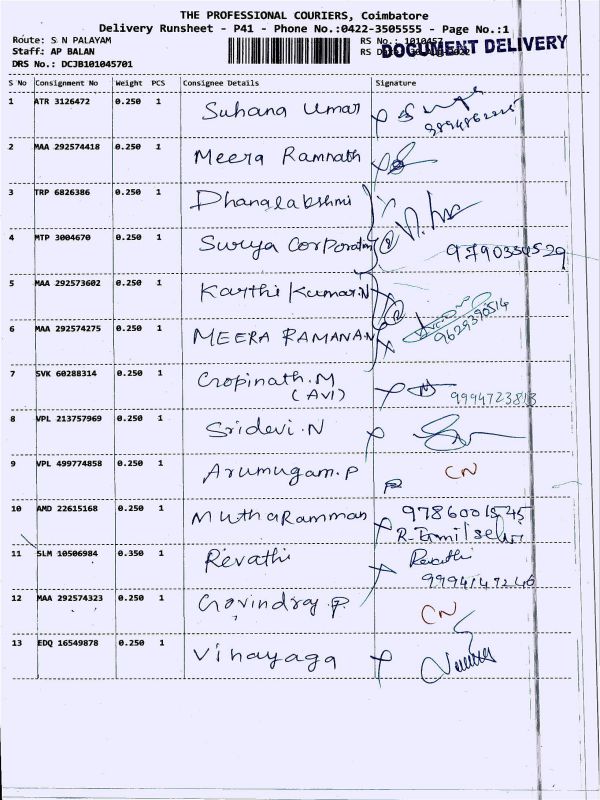 THE PROFESSIONAL COURIERS, Coimbatore
Delivery Runsheet - P41 - Phone No.:0422-3505555 - Page No.:1
Route: S N PALAYAM
RS No.: 1010457
DOCUMENT DELIVERY
Staff: AP BALAN
RS D
DRS No.: DCJB101045701
S No Consignment No Weight PCS Consignee Details Signature
1 ATR 3126472 0.250 1 Suhana Umar
2 MAA 292574418 0.250 1 Meera Ramnath
3 TRP 6826386 0.250 1 Dhanalakshmi
4 MTP 3004670 0.250 1 Surya Corporation 9790334529
5 MAA 292573602 0.250 1 Karthi Kumar.N
6 MAA 292574275 0.250 1 MEERA RAMANAN 9629390514
7 SVK 60288314 0.250 1 Gopinath.M 9994723813
(AVI)
8 VPL 213757969 0.250 1 Sridevi.N
9 VPL 499774858 0.250 1 Arumugam.P CN
10 AMD 22615168 0.250 1 MuthuRamman 9786001545
R.Tamilselvi
11 SLM 10506984 0.350 1 Revathi Revathi
9994149246
12 MAA 292574323 0.250 1 Govindraj P. CN
13 EDQ 16549878 0.250 1 Vinayaga